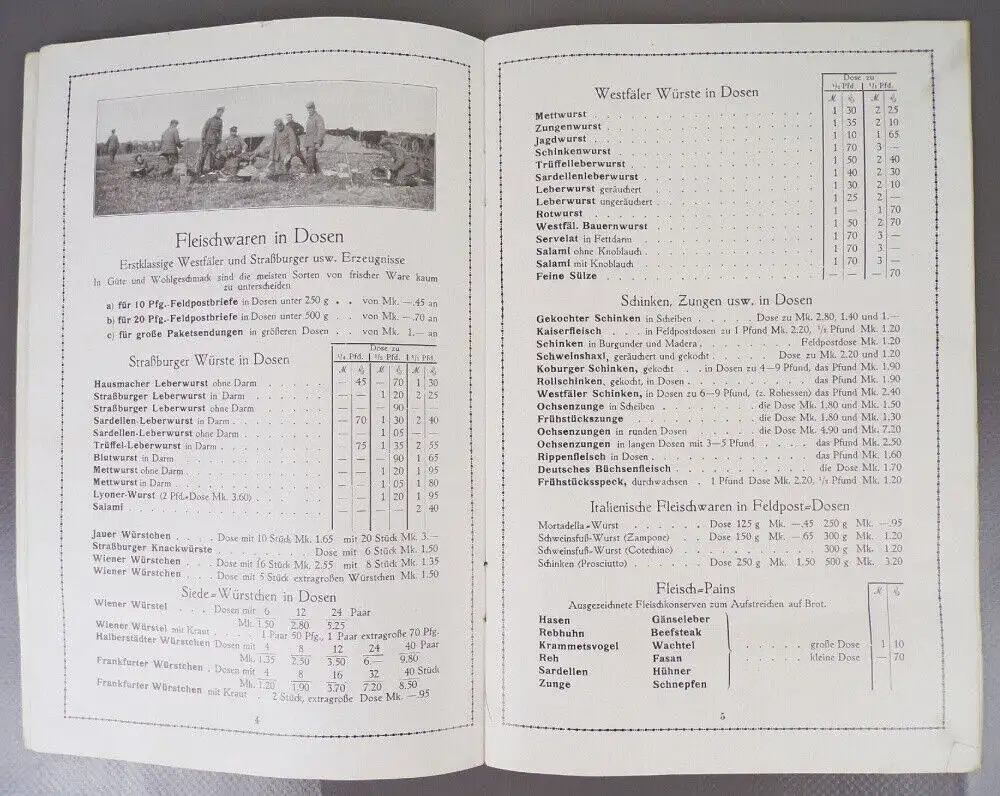 Fleischwaren in Dosen
Erstklassige Westfäler und Straßburger usw. Erzeugnisse
In Güte und Wohlgeschmack sind die meisten Sorten von frischer Ware kaum
zu unterscheiden
a) für 10 Pfg.-Feldpostbriefe in Dosen unter 250 g . . von Mk. —.45 an
b) für 20 Pfg.-Feldpostbriefe in Dosen unter 500 g . . von Mk. —.70 an
c) für große Paketsendungen in größeren Dosen . . von Mk. 1.— an
Straßburger Würste in Dosen
Dose zu
1/4 Pfd. 1/2 Pfd. 1/1 Pfd.
Hausmacher Leberwurst ohne Darm — 45 — 70 1 30
Straßburger Leberwurst in Darm — — 1 20 2 25
Straßburger Leberwurst ohne Darm 90 —
Sardellen-Leberwurst in Darm — 70 1 30 2 40
Sardellen-Leberwurst ohne Darm 1 05 —
Trüffel-Leberwurst in Darm 75 1 35 2 55
Blutwurst in Darm — — 90 1 65
Mettwurst ohne Darm — — 1 20 1 95
Mettwurst in Darm — — 1 05 1 80
Lyoner-Wurst (2 Pfd.-Dose Mk. 3.60) — — 1 20 1 95
Salami — — 2 40
Jauer Würstchen . . . . Dose mit 10 Stück Mk. 1.65 mit 20 Stück Mk. 3.—
Straßburger Knackwürste Dose mit 6 Stück Mk. 1.50
Wiener Würstchen . . . Dose mit 16 Stück Mk. 2.55 mit 8 Stück Mk. 1.35
Wiener Würstchen . . . Dose mit 5 Stück extragroßen Würstchen Mk. 1.50
Siede=Würstchen in Dosen
Wiener Würstel . . . Dosen mit 6 12 24 Paar
Mk. 1.50 2.80 5.25
Wiener Würstel mit Kraut . . . . 1 Paar 50 Pfg., 1 Paar extragroße 70 Pfg.
Halberstädter Würstchen Dosen mit 4 8 12 24 40 Paar
Mk. 1.35 2.50 3.50 6.— 9.80
Frankfurter Würstchen . Dosen mit 4 8 16 32 40 Stück
Mk. 1.20 1.90 3.70 7.20 8.50
Frankfurter Würstchen mit Kraut . 2 Stück, extragroße Dose Mk. —.95
4
Westfäler Würste in Dosen
Dose zu
1/2 Pfd. 1/1 Pfd.
Mettwurst 1 30 2 25
Zungenwurst 1 35 2 10
Jagdwurst 1 10 1 65
Schinkenwurst 1 70 3 —
Trüffelleberwurst 1 50 2 40
Sardellenleberwurst 1 40 2 30
Leberwurst geräuchert 1 30 2 10
Leberwurst ungeräuchert 1 25 2 —
Rotwurst 1 — 1 70
Westfäl. Bauernwurst 1 50 2 70
Servelat in Fettdarm 1 70 3 —
Salami ohne Knoblauch 1 70 3 —
Salami mit Knoblauch 1 70 3 —
Feine Sülze — 70
Schinken, Zungen usw. in Dosen
Gekochter Schinken in Scheiben . . . . . Dose zu Mk. 2.80, 1.40 und 1.—
Kaiserfleisch . . . in Feldpostdosen zu 1 Pfund Mk. 2.20, 1/2 Pfund Mk. 1.20
Schinken in Burgunder und Madera Feldpostdose Mk. 1.20
Schweinshaxl, geräuchert und gekocht Dose zu Mk. 2.20 und 1.20
Koburger Schinken, gekocht . . in Dosen zu 4—9 Pfund, das Pfund Mk. 1.90
Rollschinken, gekocht, in Dosen das Pfund Mk. 1.90
Westfäler Schinken, in Dosen zu 6—9 Pfund, (z. Rohessen) das Pfund Mk. 2.40
Ochsenzunge in Scheiben die Dose Mk. 1.80 und 1.50
Frühstückszunge die Dose Mk. 1.80 und 1.30
Ochsenzungen in runden Dosen die Dose Mk. 4.90 und 7.20
Ochsenzungen in langen Dosen mit 3—5 Pfund das Pfund Mk. 2.50
Rippenfleisch in Dosen das Pfund Mk. 1.60
Deutsches Büchsenfleisch die Dose Mk. 1.70
Frühstücksspeck, durchwachsen . 1 Pfund Dose Mk. 2.20, 1/2 Pfund Mk. 1.20
Italienische Fleischwaren in Feldpost=Dosen
Mortadella=Wurst Dose 125 g Mk. —.45 250 g Mk. —.95
Schweinsfuß=Wurst (Zampone) Dose 150 g Mk. —.65 300 g Mk. 1.20
Schweinsfuß=Wurst (Cotechino) 300 g Mk. 1.20
Schinken (Prosciutto) Dose 250 g Mk. 1.50 500 g Mk. 3.20
Fleisch=Pains
Ausgezeichnete Fleischkonserven zum Aufstreichen auf Brot.
Hasen Gänseleber
Rebhuhn Beefsteak
Krammetsvogel Wachtel große Dose 1 10
Reh Fasan kleine Dose — 70
Sardellen Hühner
Zunge Schnepfen
5